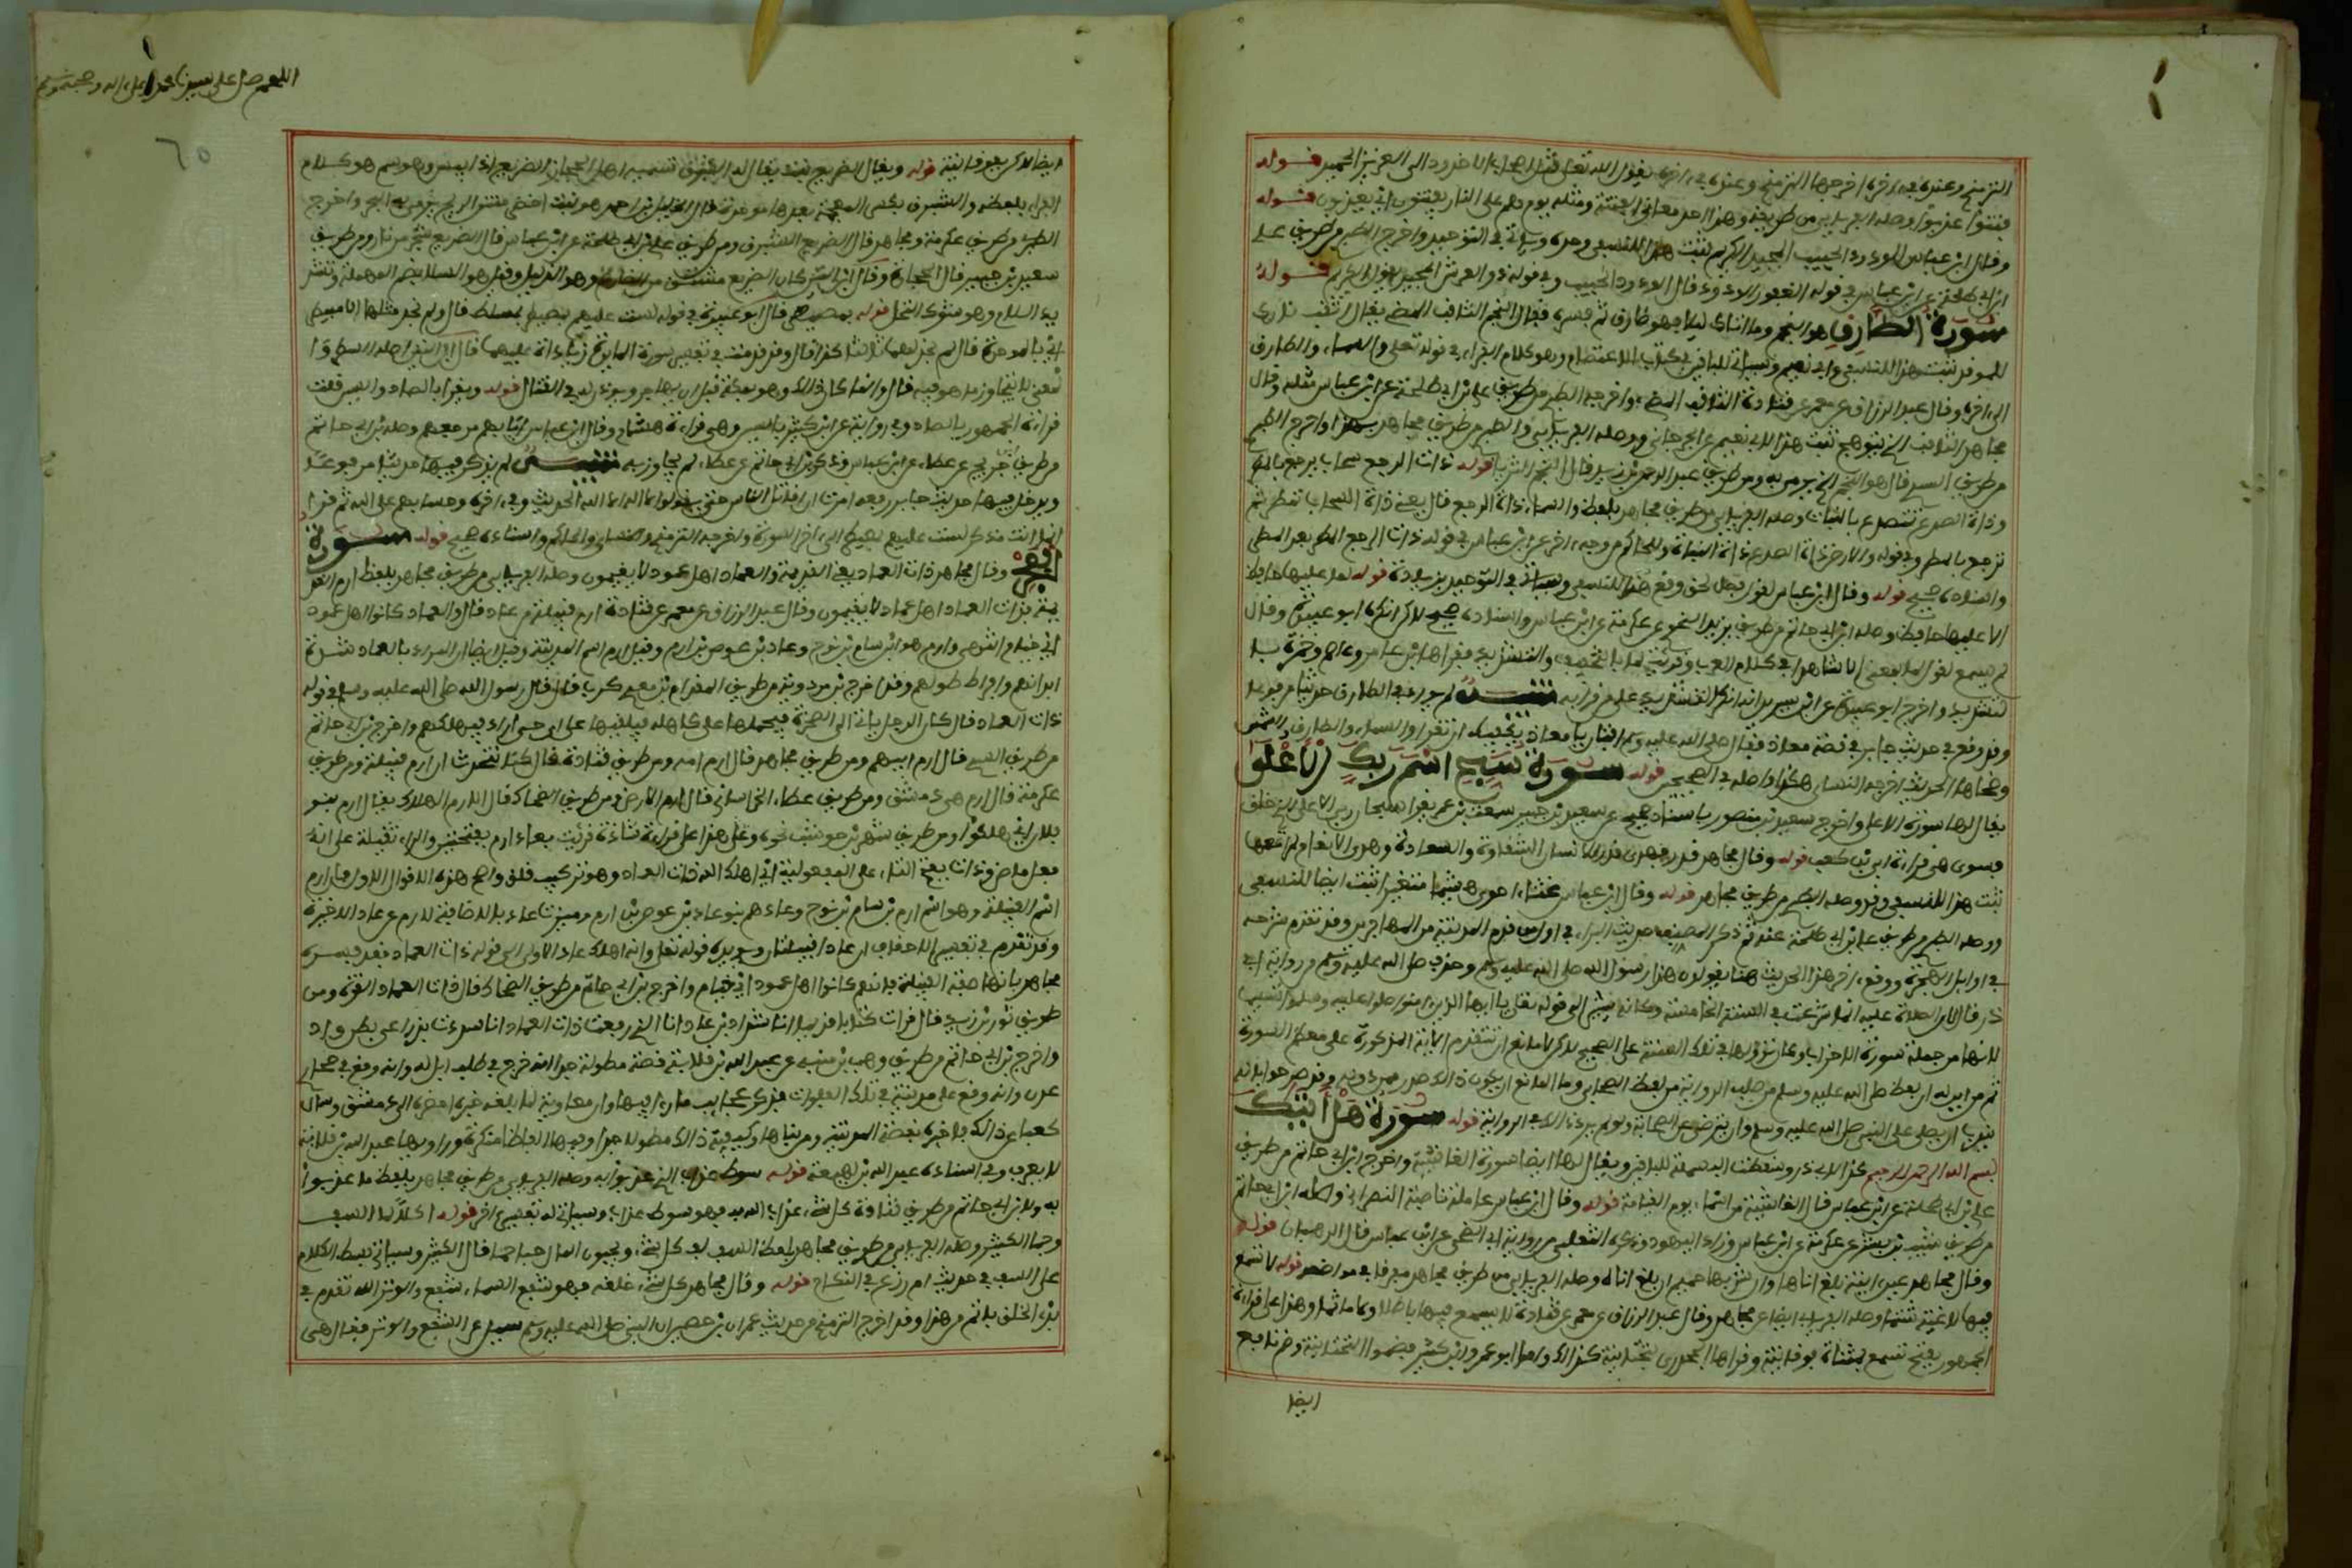 الترمذي وعنده في اخره اخرجها الترمذي وعنده في اخره يقول الله تعالى قتل اصحاب الاخدود الى العزيز الحميد قوله
فتنوا عذبوا وصله الفريابي من طريقه وهذا احد معاني الفتنة ومثله يوم هم على النار يفتنون اي يعذبون قوله
وقال ابن عباس الودود الحبيب المجيد الكريم ثبت هذا للنسفي وحده وسياتي في التوحيد واخرج الطبري من طريق علي
ابن ابي طلحة عن ابن عباس في قوله الغفور الودود قال الودود الحبيب وفي قوله ذو العرش المجيد يقول الكريم قوله
سورة الطارق هو النجم وما اتاك ليلا فهو طارق ثم فسره فقال النجم الثاقب المضيء يقال اثقب نارك
للموقد ثبت هذا للنسفي وابي نعيم وسياتي للباقين في كتاب الاعتصام وهو كلام الفراء في قوله تعالى والسماء والطارق
الى اخره وقال عبد الرزاق عن معمر عن قتادة الثاقب المضيء واخرجه الطبري من طريق علي بن ابي طلحة عن ابن عباس مثله وقال
مجاهد الثاقب الذي يتوهج ثبت هذا لابي نعيم عن الجرجاني ووصله الفريابي والطبري من طريق مجاهد بهذا واخرج الطبري
من طريق السدي قال هو النجم الذي يرمى به ومن طريق عبد الرحمن بن زيد قال النجم الثريا قوله ذات الرجع سحاب يرجع بالمطر
وذات الصدع تتصدع بالنبات وصله الفريابي من طريق مجاهد بلفظ والسماء ذات الرجع قال يعني ذات السحاب تمطر ثم
ترجع بالمطر وفي قوله والارض ذات الصدع ذات النبات وللحاكم من وجه اخر عن ابن عباس في قوله ذات الرجع المطر بعد المطر
واسناده صحيح قوله وقال ابن عباس لقول فصل لحق وقع هذا للنسفي وسياتي في التوحيد بزيادة قوله لما عليها حافظ
الا عليها حافظ وصله ابن ابي حاتم من طريق يزيد النحوي عن عكرمة عن ابن عباس واسناده صحيح لكن انكره ابو عبيدة وقال
لم نسمع لقول لما بمعنى الا شاهدا في كلام العرب وقرئت لما بالتخفيف والتشديد فقراها ابن عامر وعاصم وحمزة بال
تشديد واخرج ابو عبيدة عن ابن سيرين انه انكر التشديد على من قرا به تنبيه لم يورد في الطارق حديثا مرفوعا
وقد وقع في حديث جابر في قصة معاذ فقال صلى الله عليه وسلم افتان يا معاذ يكفيك ان تقرا والسماء والطارق والشمس
وضحاها الحديث اخرجه النسائي هكذا واصله في الصحيحين قوله سورة سبح اسم ربك الاعلى
يقال لها سورة الاعلى واخرج سعيد بن منصور باسناد صحيح عن سعيد بن جبير سمعت ابن عمر يقرا سبحان ربي الاعلى الذي خلق
فسوى هي قراءة ابي بن كعب قوله وقال مجاهد قدر فهدى قدر للانسان الشقاوة والسعادة وهدى الانعام لمراتعها
ثبت هذا للنسفي وقد وصله الطبري من طريق مجاهد قوله وقال ابن عباس غثاء احوى هشيما متغيرا ثبت ايضا للنسفي
ووصله الطبري من طريق علي بن ابي طلحة عنه ثم ذكر المصنف حديث البراء في اول من قدم المدينة من المهاجرين وقد تقدم شرحه
في اوايل الهجرة ووقع اخر هذا الحديث هنا يقولون هذا رسول الله صلى الله عليه وسلم وحذف صلى الله عليه وسلم من رواية ابي
ذر قال لان الصلاة عليه انما شرعت في السنة الخامسة وكانه يشير الى قوله تعالى يا ايها الذين امنوا صلوا عليه وسلموا تسليما
لانها من جملة سورة الاحزاب وكان نزولها في تلك السنة على الصحيح لكن لا مانع ان تتقدم الاية المذكورة على معظم السورة
ثم من اين له ان لفظ صلى الله عليه وسلم من صلب الرواية من لفظ الصحابي وما المانع ان يكون ذلك صدر ممن دونه وقد صرحوا بانه
يندب ان يصلى على النبي صلى الله عليه وسلم وان يترضى عن الصحابة ولو لم يرد ذلك في الرواية قوله سورة هل اتيك
بسم الله الرحمن الرحيم كذا لابي ذر وسقطت البسملة للباقين ويقال لها ايضا سورة الغاشية واخرج ابن ابي حاتم من طريق
علي بن ابي طلحة عن ابن عباس قال الغاشية من اسماء يوم القيامة قوله وقال ابن عباس عاملة ناصبة النصارى وصله ابن ابي حاتم
من طريق شبيب بن بشر عن عكرمة عن ابن عباس وزاد اليهود وذكره الثعلبي من رواية ابي الضحى عن ابن عباس قال الرهبان قوله
وقال مجاهد عين انية بلغ اناها وحان شربها حميم ان بلغ اناه وصله الفريابي من طريق مجاهد مفرقا في مواضعه قوله لا تسمع
فيها لاغية شتما وصله الفريابي ايضا عن مجاهد وقال عبد الرزاق عن معمر عن قتادة لا تسمع فيها باطلا ولا ماثما وهذا على قراءة
الجمهور بفتح تسمع بمثناة فوقانية وقراها الجحدري بتحتانية كذلك واما ابو عمرو وابن كثير فضما التحتانية وضم نافع
ايضا
اللهم صل على سيدنا محمد وعلى اله وصحبه وسلم
٦٥
ايضا لكن بفوقانية قوله ويقال الضريع نبت يقال له الشبرق تسميه اهل الحجاز الضريع اذا يبس وهو سم هو كلام
الفراء بلفظه والشبرق بكسر المعجمة بعدها موحدة قال الخليل بن احمد هو نبت اخضر منتن الريح يرمي به البحر واخرج
الطبري من طريق عكرمة ومجاهد قال الضريع الشبرق ومن طريق علي بن ابي طلحة عن ابن عباس قال الضريع شجر من نار ومن طريق
سعيد بن جبير قال الحجارة وقال ابن التين كان الضريع مشتق من الضارع وهو الذليل وقيل هو السلا بضم المهملة وتش
ديد اللام وهو شوك النخل قوله بمصيطر قال ابو عبيدة في قوله لست عليهم بمصيطر بمسلط قال ولم نجد مثلها الا مبيطر
اي بالموحدة قال لم نجد لهما ثالثا كذا قال وقد قدمت في تفسير سورة المايدة زيادة عليهما قال ابن التين اصله السطر وا
لمعنى لا يتجاوز ما هو فيه قال وانما كان ذلك وهو بمكة قبل ان يهاجر ويوذن له في القتال قوله ويقرا بالصاد والسين قلت
قراءة الجمهور بالصاد وفي رواية عن ابن كثير بالسين وهي قراءة هشام وقال ابن عباس ايابهم مرجعهم وصله ابن ابي حاتم
من طريق ابن جريج عن عطاء عن ابن عباس وذكره ابن ابي حاتم عن عطاء لم يجاوز به تنبيه لم يذكر فيها حديثا مرفوعا
ويدخل فيها حديث جابر رفعه امرت ان اقاتل الناس حتى يقولوا لا اله الا الله الحديث وفي اخره وحسابهم على الله ثم قرا
انما انت مذكر لست عليهم بمصيطر الى اخر السورة واخرجه الترمذي والنسائي والحاكم واسناده صحيح قوله سورة
الفجر وقال مجاهد ذات العماد يعني القديمة والعماد اهل عمود لا يقيمون وصله الفريابي من طريق مجاهد بلفظ ارم القد
يمة ذات العماد اهل عماد لا يقيمون وقال عبد الرزاق عن معمر عن قتادة ارم قبيلة من عاد قال والعماد كانوا اهل عمود
اي خيام انتهى وارم هو ابن سام بن نوح وعاد بن عوص بن ارم وقيل ارم اسم المدينة وقيل ايضا ان المراد بالعماد شدة
ابدانهم وافراط طولهم وقد اخرج ابن مردويه من طريق المقدام بن معدي كرب قال قال رسول الله صلى الله عليه وسلم في قوله
ذات العماد قال كان الرجل ياتي الى الصخرة فيحملها على كاهله فيلقيها على اي حي اراد فيهلكهم واخرج ابن ابي حاتم
من طريق السدي قال ارم ابيهم ومن طريق مجاهد قال ارم امه ومن طريق قتادة قال كنا نتحدث ان ارم قبيلة ومن طريق
عكرمة قال ارم هي دمشق ومن طريق عطاء الخراساني قال ارم الارض ومن طريق الضحاك قال الارم الهلاك يقال ارم بنو
فلان اي هلكوا ومن طريق شهر بن حوشب نحوه وهذا على قراءة شاذة قرئت بعاد ارم بفتحتين والراء ثقيلة على انه
فعل ماض وذات بفتح التاء على المفعولية اي اهلك الله ذات العماد وهو تركيب قلق واصح هذه الاقوال الاول ان ارم
اسم القبيلة وهو اسم ارم بن سام بن نوح وعاد هم بنو عاد بن عوص بن ارم وميزت عاد بالاضافة لارم عن عاد الاخيرة
وقد تقدم في تفسير الاحقاف ان عادا قبيلتان ويويده قوله تعالى وانه اهلك عادا الاولى الى قوله ذات العماد فقد فسره
مجاهد بانها صفة القبيلة فانهم كانوا اهل عمود اي خيام واخرج ابن ابي حاتم من طريق الضحاك قال ذات العماد القوة ومن
طريق ثور بن زيد قال قرات كتابا قديما انا شداد بن عاد انا الذي رفعت ذات العماد انا سددت بذراعي بطن واد
واخرج ابن ابي حاتم من طريق وهب بن منبه عن عبد الله بن قلابة قصة مطولة جدا انه خرج في طلب ابل له وانه وقع في صحاري
عدن وانه وقع على مدينة في تلك الفلوات فذكر عجايب ما راى فيها وان معاوية لما بلغه خبره احضره الى دمشق وسال
كعبا عن ذلك فاخبره بقصة المدينة ومن بناها وكيفية ذلك مطولا جدا وفيها الفاظ منكرة وراويها عبد الله بن قلابة
لا يعرف وفي اسناده عبد الله بن لهيعة قوله سوط عذاب الذي عذبوا به وصله الفريابي من طريق مجاهد بلفظ ما عذبوا
به ولابن ابي حاتم من طريق قتادة كل شيء عذاب الله به فهو سوط عذاب وسياتي له تفسير اخر قوله اكلا لما السف
وجما الكثير وصله الفريابي من طريق مجاهد بلفظ السف لف كل شيء ويحبون المال حبا جما قال الكثير وسياتي بسط الكلام
على السف في حديث ام زرع في النكاح قوله وقال مجاهد كل شيء خلقه فهو شفع السماء شفع والوتر الله تقدم في
بدء الخلق باتم من هذا وقد اخرج الترمذي من حديث عمران بن حصين ان النبي صلى الله عليه وسلم سيل عن الشفع والوتر فقال هي